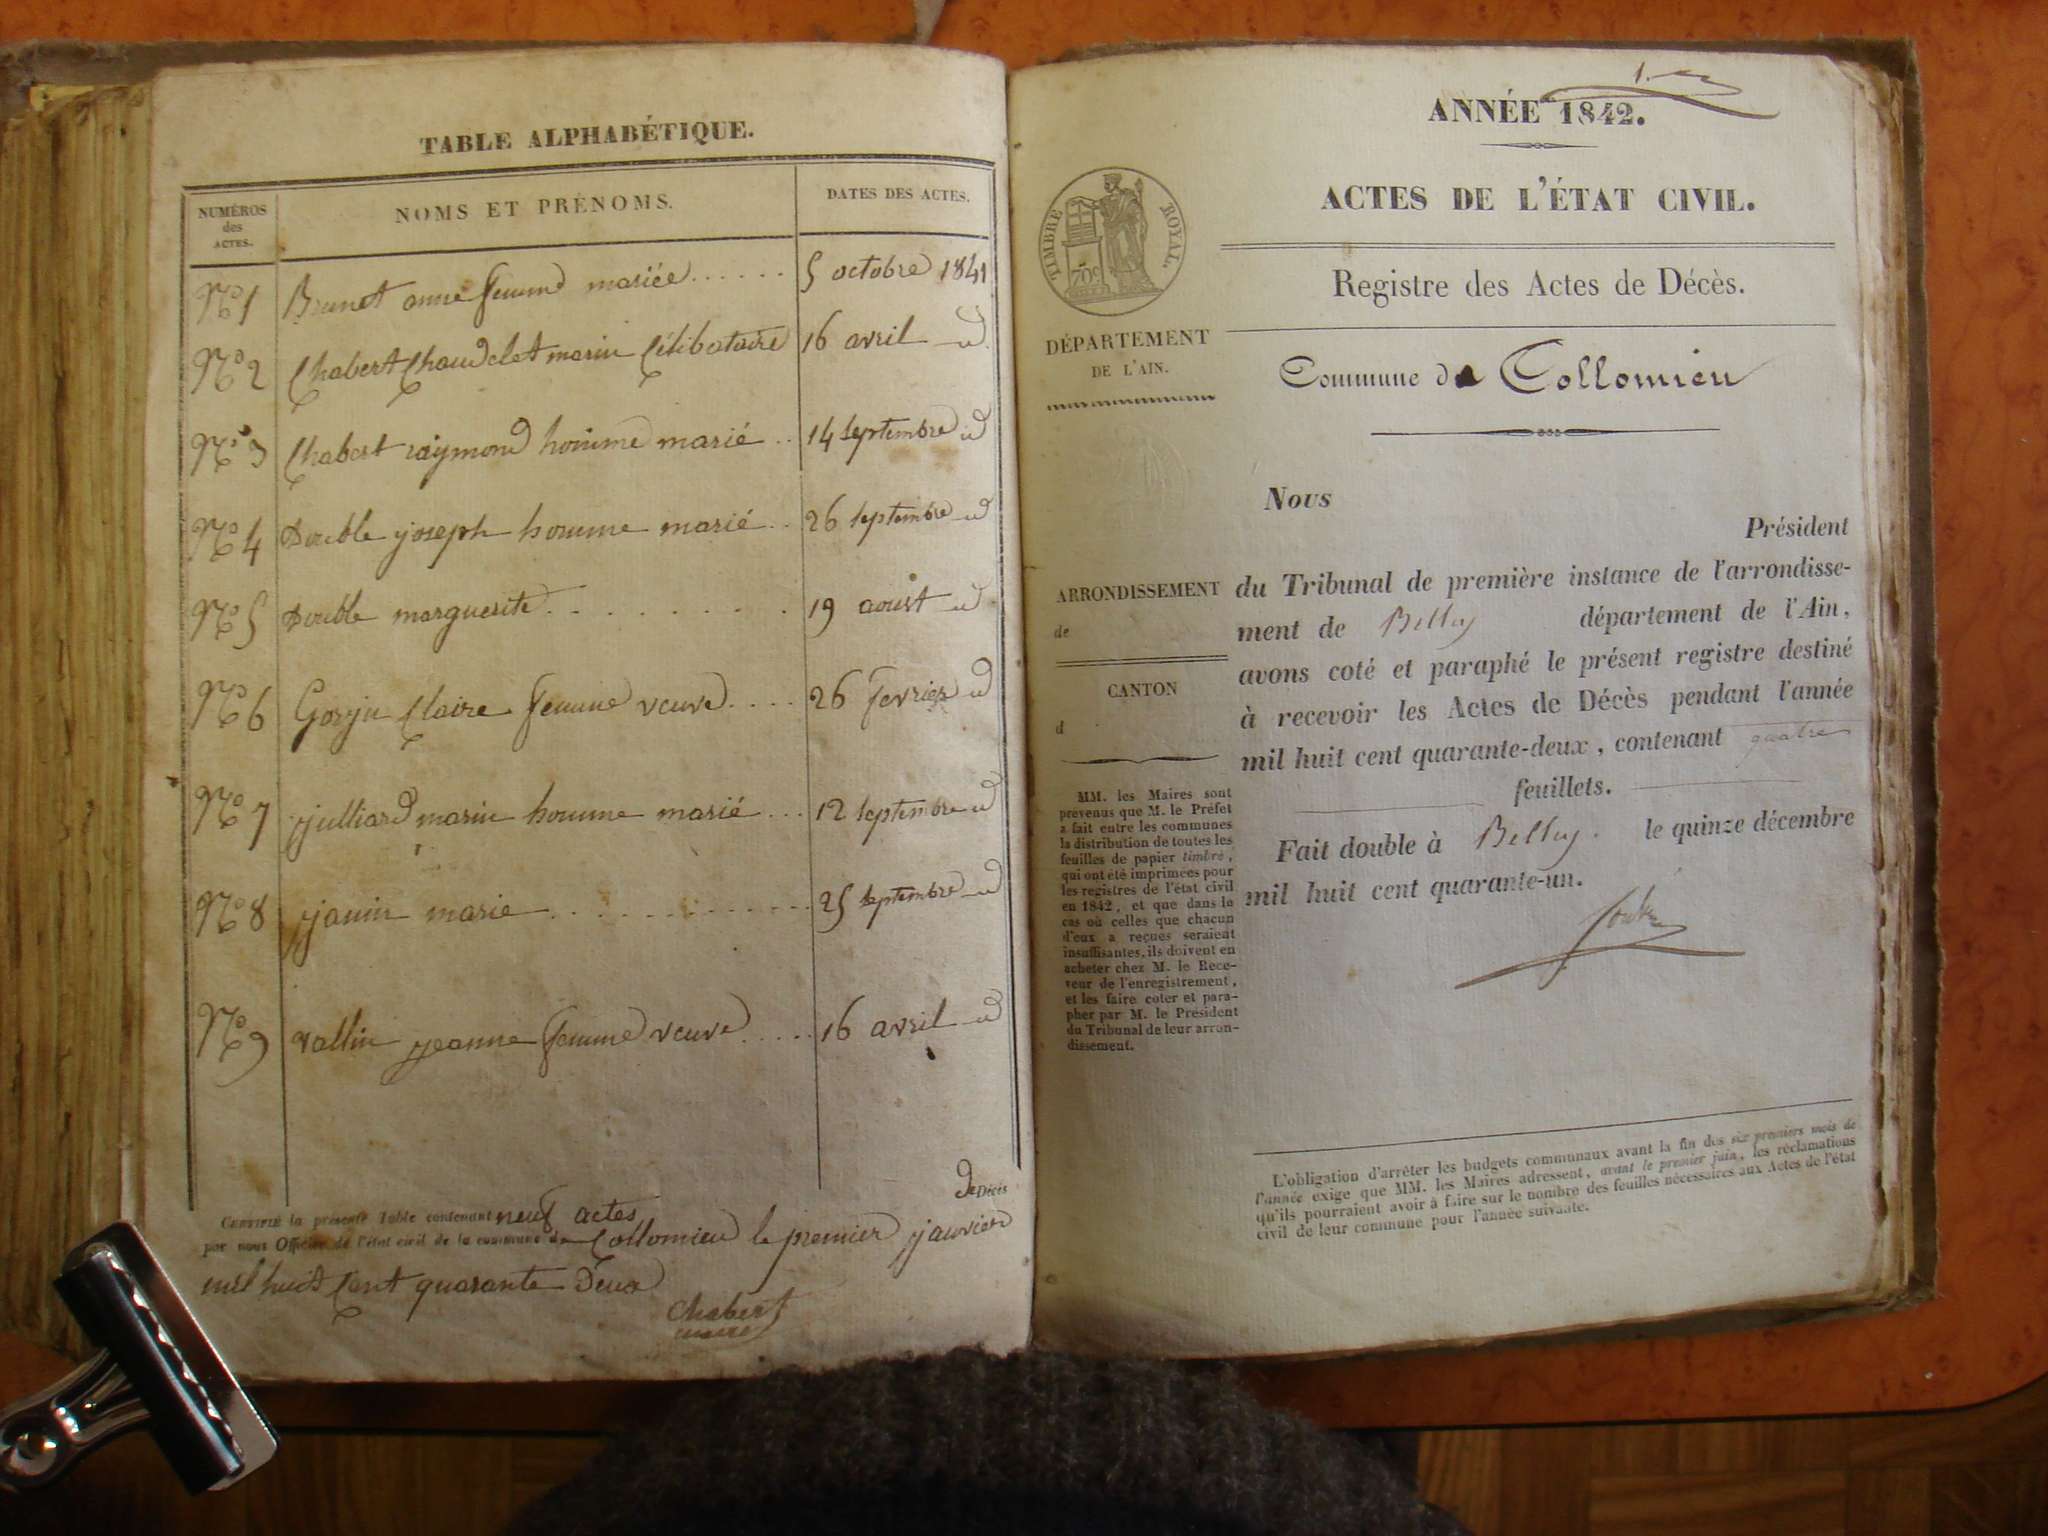 TABLE ALPHABÉTIQUE.
NUMÉROS des ACTES. NOMS ET PRÉNOMS. DATES DES ACTES.
N° 1 Brunet anne femme mariée...... 5 octobre 1841
N° 2 Chabert Claude marin Célibataire 16 avril id
N° 3 Chabert raymond homme marié.. 14 septembre id
N° 4 Double joseph homme marié.. 26 septembre id
N° 5 Double marguerite......... 19 aoust id
N° 6 Gorju Claire femme veuve.... 26 fevrier id
N° 7 julliard marin homme marié... 12 septembre id
N° 8 janin marie............ 25 septembre id
N° 9 vallin jeanne femme veuve..... 16 avril id
de Décès
CERTIFIÉ la présente Table contenant neuf actes
par nous Officier de l'état civil de la commune de Collomieu le premier janvier
mil huit Cent quarante Deux
Chabert
maire
1.er
ANNÉE 1842.
ACTES DE L'ÉTAT CIVIL.
TIMBRE ROYAL.
70c
Registre des Actes de Décès.
DÉPARTEMENT
DE L'AIN.
Commune de Collomieu
Nous
Président
ARRONDISSEMENT
de
CANTON
d
du Tribunal de première instance de l'arrondisse-
ment de Belley département de l'Ain,
avons coté et paraphé le présent registre destiné
à recevoir les Actes de Décès pendant l'année
mil huit cent quarante-deux, contenant quatre
feuillets.
Fait double à Belley. le quinze décembre
mil huit cent quarante-un.
MM. les Maires sont
prévenus que M. le Préfet
a fait entre les communes
la distribution de toutes les
feuilles de papier timbré,
qui ont été imprimées pour
les registres de l'état civil
en 1842, et que dans le
cas où celles que chacun
d'eux a reçues seraient
insuffisantes, ils doivent en
acheter chez M. le Rece-
veur de l'enregistrement,
et les faire coter et para-
pher par M. le Président
du Tribunal de leur arron-
dissement.
L'obligation d'arrêter les budgets communaux avant la fin des six premiers mois de
l'année exige que MM. les Maires adressent, avant le premier juin, les réclamations
qu'ils pourraient avoir à faire sur le nombre des feuilles nécessaires aux Actes de l'état
civil de leur commune pour l'année suivante.